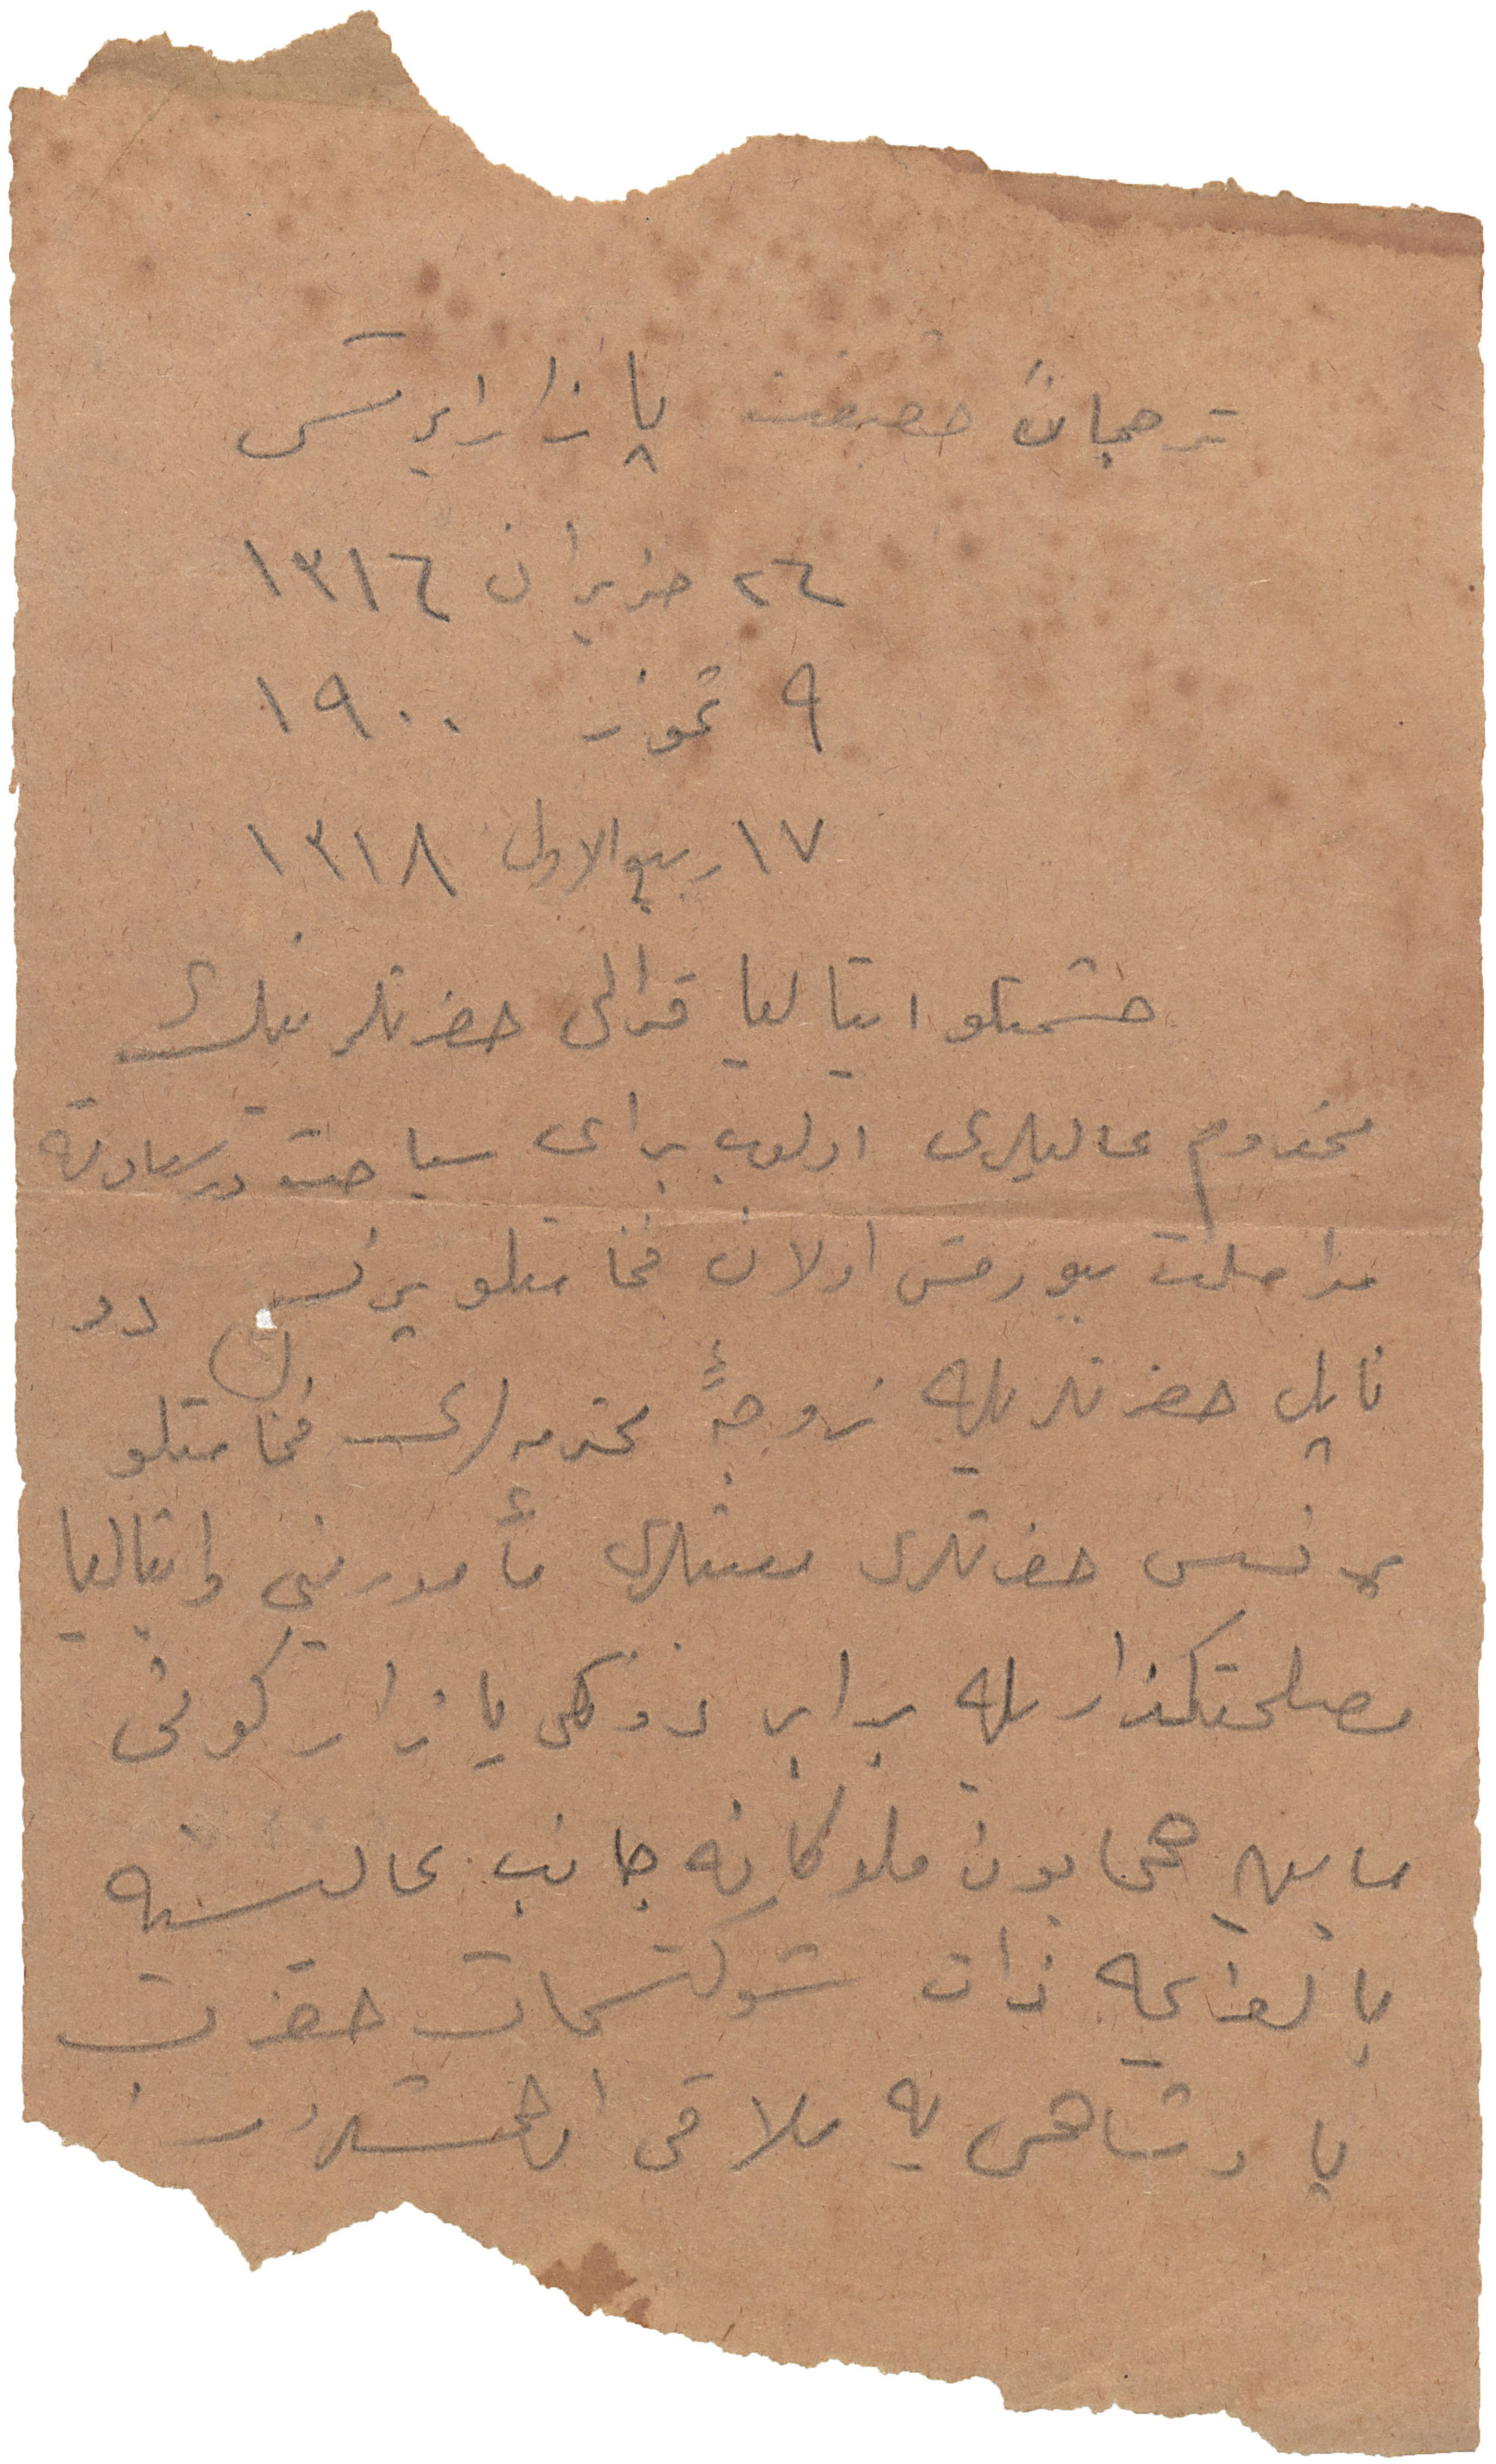 ترجمان حقیقت پازار ایرتسی
٢٦ حزیران ١٣١٦
٩ تموز ١٩٠٠
١٧ ربیع الاول ١٣١٨
حشمتلو ایتالیا قرالی حضرتلرینك
مخدوم عالیلری اولوب برای سیاحت درسعادته
مواصلت بیورمش اولان فخامتلو پرنس دو
ناپل حضرتلریله زوجهٔ محترمه لری فخامتلو
پرنسس حضرتلری معیتلری مأمورینی و ایتالیا
مصلحتكذاریله برابر دونكی پازار كونی
مابین همایون ملوكانه جانب عالیسنه
بالعزیمه ذات شوكتسمات حضرت
پادشاهی یه ملاقی اولمشلردر